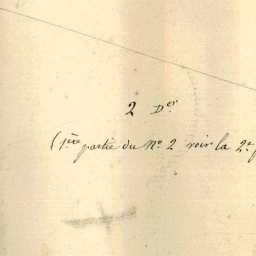 2 Der
(1ère partie du No. 2 voir la 2e